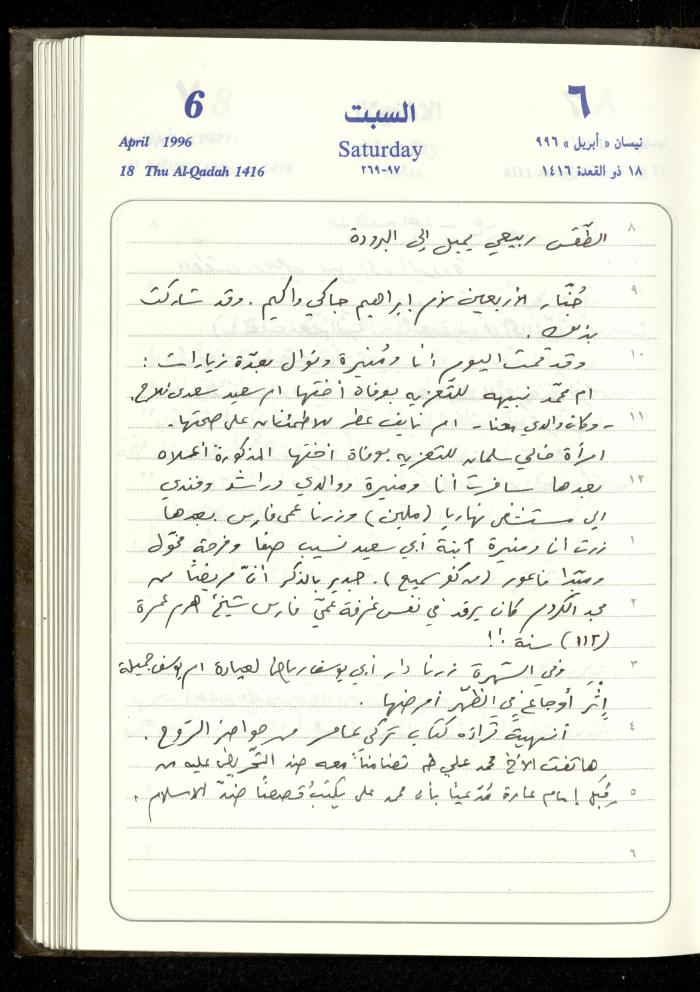 6
السبت
٦
April 1996
Saturday
نيسان « أبريل » ٩٩٦
18 Thu Al-Qadah 1416
٢٦٩-٩٧
١٨ ذو القعدة ١٤١٦
٨
الطّقس ربيعي يميل إلى البرودة
٩
جُنّاز الأربعين لأم إبراهيم جاكي واكيم. وقد شاركت
بذلك.
١٠
وقد قمت اليوم أنا ومُنيرة ونوال بعدّة زيارات :
ام محمّد نبيهه للتّعزيه بوفاة أختها ام سعيد سعدى فلاح.
١١
- وكان والدي معنا - ام نايف عطر للاطمئنان على صحتها.
امرأة خالي سلمان للتعزيه بوفاة اختها المذكورة أعلاه
١٢
بعدها سافرت أنا ومنيرة ووالدي وراشد وفندي
الى مستشفى نهاريا ( ) وزرنا عمي فارس بعدها
١
زرت أنا ومنيرة أبنة أبي سعيد نسيب صفا وفرحة مخّول
فاعور (من كفر سميع). جدير بالذكر انّ مريضًا من
٢
مجد الكروم كان يرقد في نفس غرفة عمّي فارس شيخ هرم عمرة
(١١٢) سنة !!
٣
وفي السّهرة زرنا دار أبي يوسف رياض لعيادة ام يوسف جميلة
إثْر أوجاعٍ في الظّهر أمرضها.
٤
أنهيتُ قراءة كتاب تركي عامر من حواضر الرّوح.
هاتفت الأخ محمد علي طه تضامنًا معه ضد التّحريض عليه من
٥
قِبَل إمام عارة مُدّعيًا بأن محمد علي يكتبُ قصصًا ضدّ الاسلام.
٦